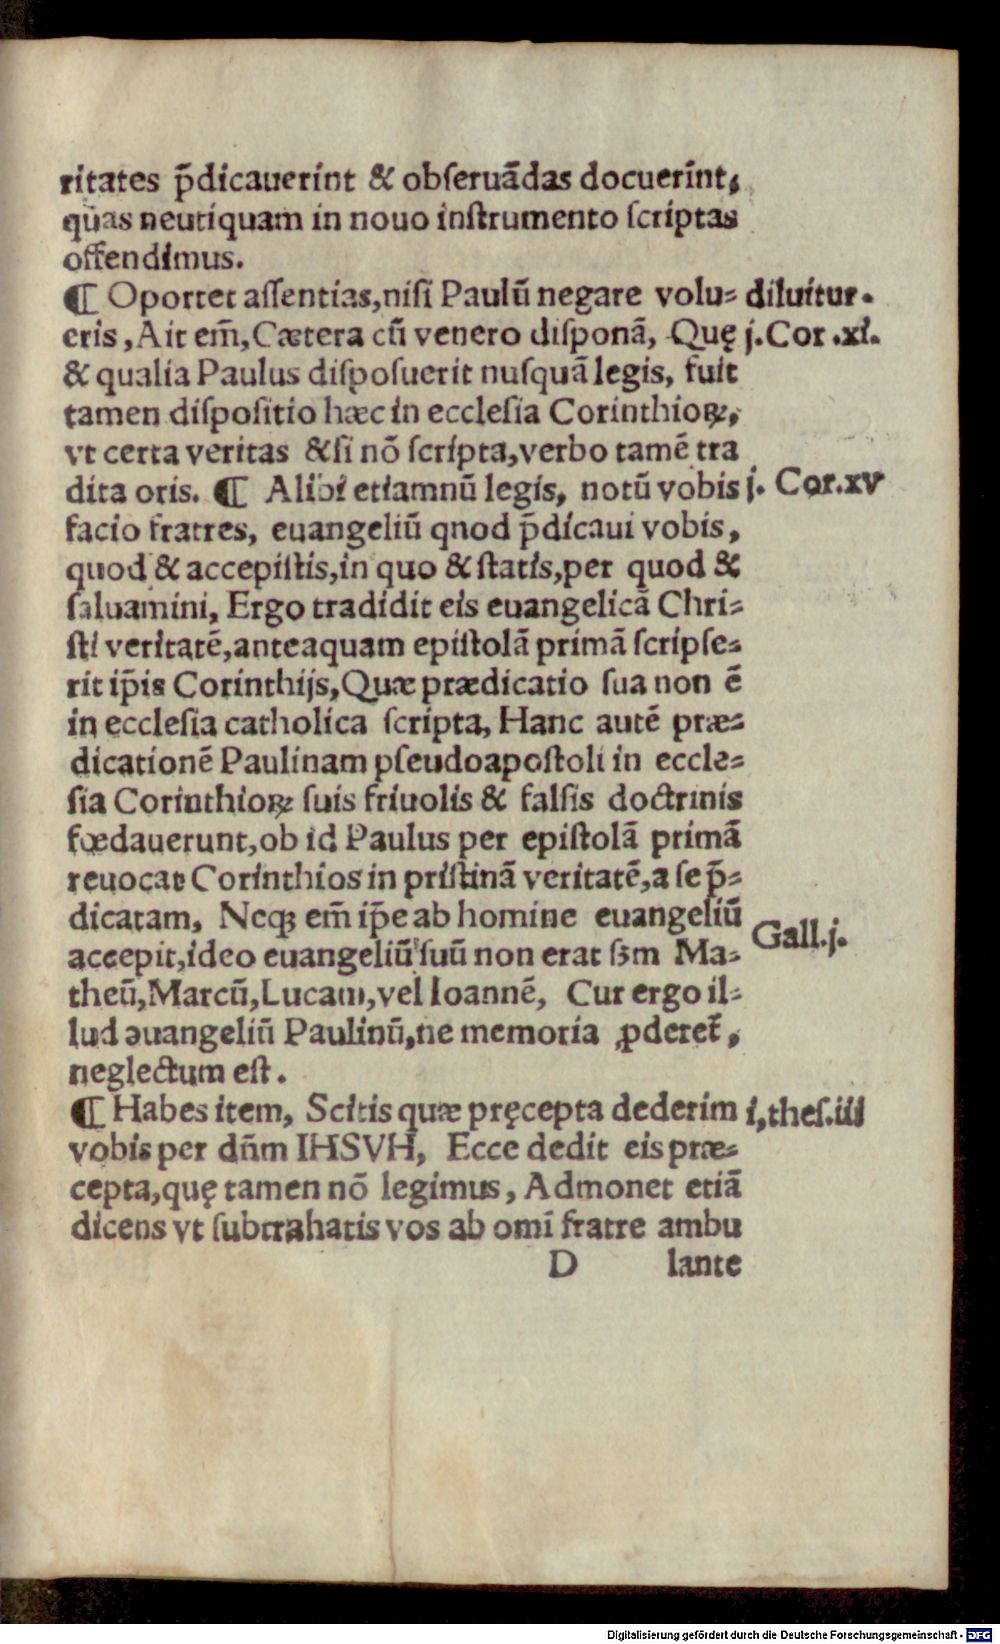 ritates p̄dicauerint & obſeruãdas docuerint,
quas neutiquam in nouo inſtrumento ſcriptas
offendimus.
¶ Oportet aſſentias,niſi Paulũ negare volu⸗ diluitur.
eris,Ait em̃,Cætera cũ venero diſponã, Quę j.Cor.xi.
& qualia Paulus diſpoſuerit nuſquã legis, fuit
tamen diſpoſitio hæc in eccleſia Corinthioꝝ,
vt certa veritas &ſi nõ ſcripta,verbo tamẽ tra
dita oris. ¶ Alibi etiamnũ legis, notũ vobis j. Cor.xv
facio fratres, euangeliũ qnod p̄dicaui vobis,
quod & accepiſtis,in quo & ſtatis,per quod &
ſaluamini, Ergo tradidit eis euangelicã Chri⸗
ſti veritatẽ,anteaquam epiſtolã primã ſcripſe⸗
rit ip̄is Corinthijs,Quæ prædicatio ſua non ẽ
in eccleſia catholica ſcripta, Hanc autẽ præ⸗
dicationẽ Paulinam pſeudoapoſtoli in eccle⸗
ſia Corinthioꝝ ſuis friuolis & falſis doctrinis
fœdauerunt,ob id Paulus per epiſtolã primã
reuocat Corinthios in priſtinã veritatẽ,a ſe p̄⸗
dicatam, Neqꝫ em̃ ip̄e ab homine euangeliũ
Gall.j.
accepit,ideo euangeliũ ſuũ non erat ſꝫm Ma⸗
theũ,Marcũ,Lucam,vel Ioannẽ, Cur ergo il⸗
lud ǝuangeliũ Paulinũ,ne memoria ꝓderet̃,
neglectum eſt.
¶ Habes item, Scitis quæ pręcepta dederim i,theſ.iiii
vobis per dñm IHSVH, Ecce dedit eis præ⸗
cepta,quę tamen nõ legimus, Admonet etiã
dicens vt ſubtrahatis vos ab omi fratre ambu
D lante
Digitalisierung gefördert durch die Deutsche Forschungsgemeinschaft - DFG